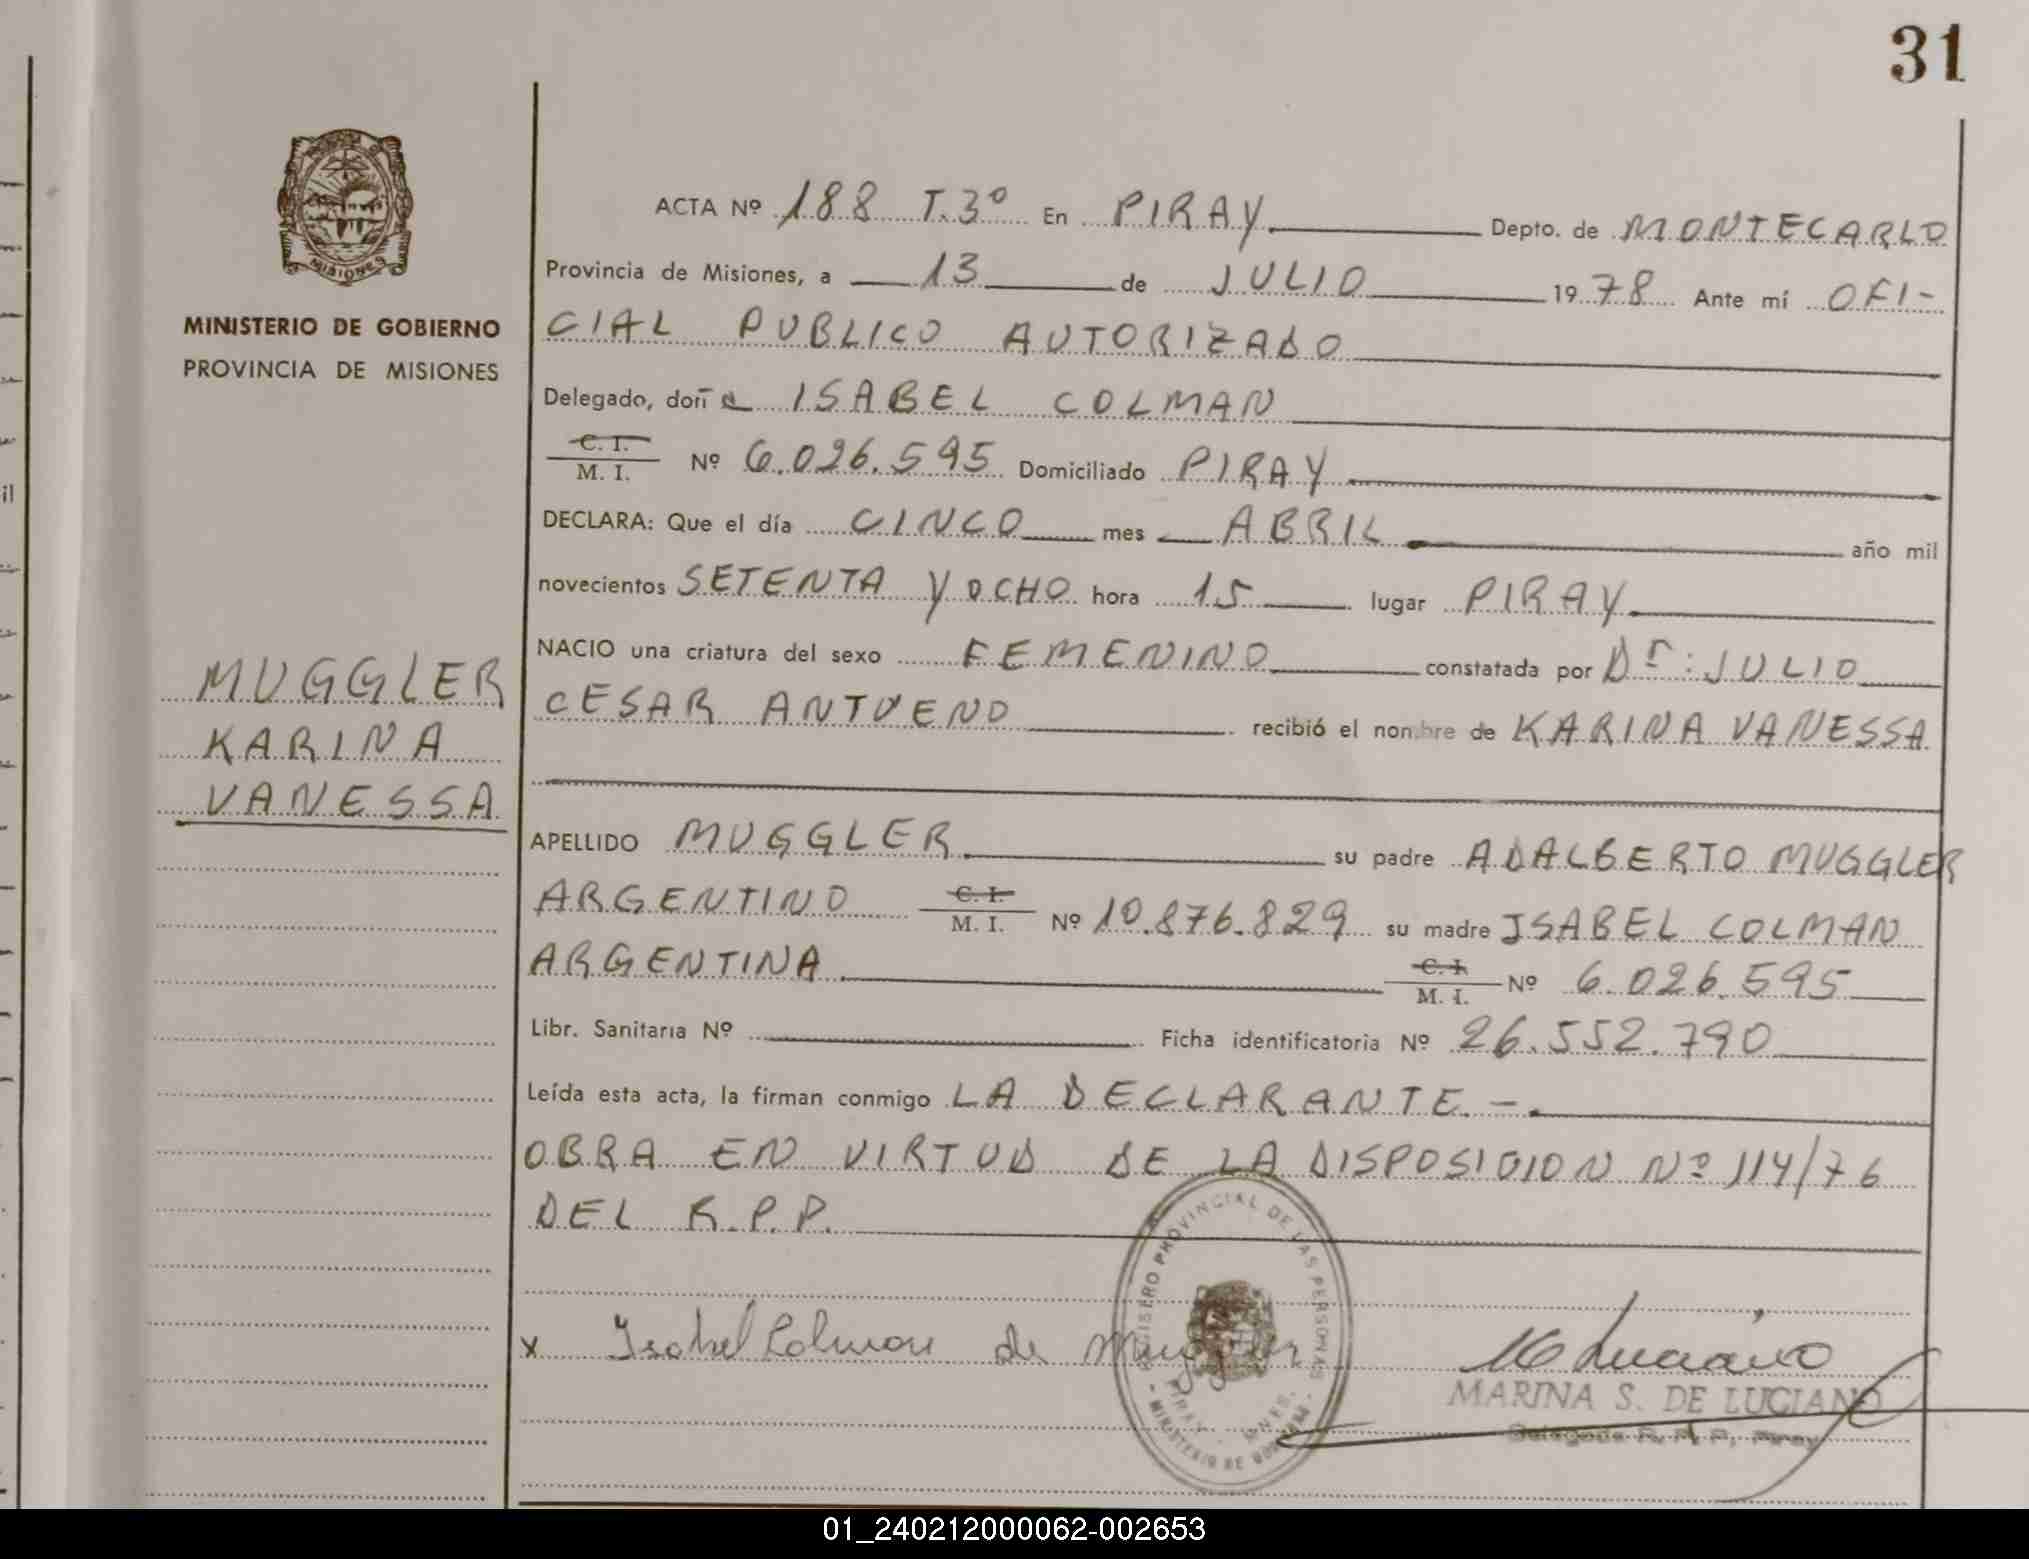 31
MISIONES
MINISTERIO DE GOBIERNO
PROVINCIA DE MISIONES
MUGGLER
KARINA
VANESSA
ACTA Nº 188 T.3º En PIRAY Depto. de MONTECARLO
Provincia de Misiones, a 13 de JULIO 1978 Ante mí OFI-
CIAL PUBLICO AUTORIZADO
Delegado, doña ISABEL COLMAN
C. I.
M. I. Nº 6.026.595 Domiciliado PIRAY
DECLARA: Que el día CINCO mes ABRIL año mil
novecientos SETENTA Y OCHO hora 15 lugar PIRAY
NACIO una criatura del sexo FEMENINO constatada por Dr: JULIO
CESAR ANTUENO recibió el nombre de KARINA VANESSA
APELLIDO MUGGLER su padre ADALBERTO MUGGLER
ARGENTINO C. I. M. I. Nº 10.876.829 su madre ISABEL COLMAN
ARGENTINA C. I. M. I. Nº 6.026.595
Libr. Sanitaria Nº Ficha identificatoria Nº 26.552.790
Leída esta acta, la firman conmigo LA DECLARANTE.-
OBRA EN VIRTUD DE LA DISPOSICION Nº 114/76
DEL R.P.P.
x Isabel Colman de Muggler
REGISTRO PROVINCIAL DE LAS PERSONAS
PIRAY - MNES.
MINISTERIO DE GOBIERNO
MARINA S. DE LUCIANO
Delegada R. P. P. Piray
01_240212000062-002653